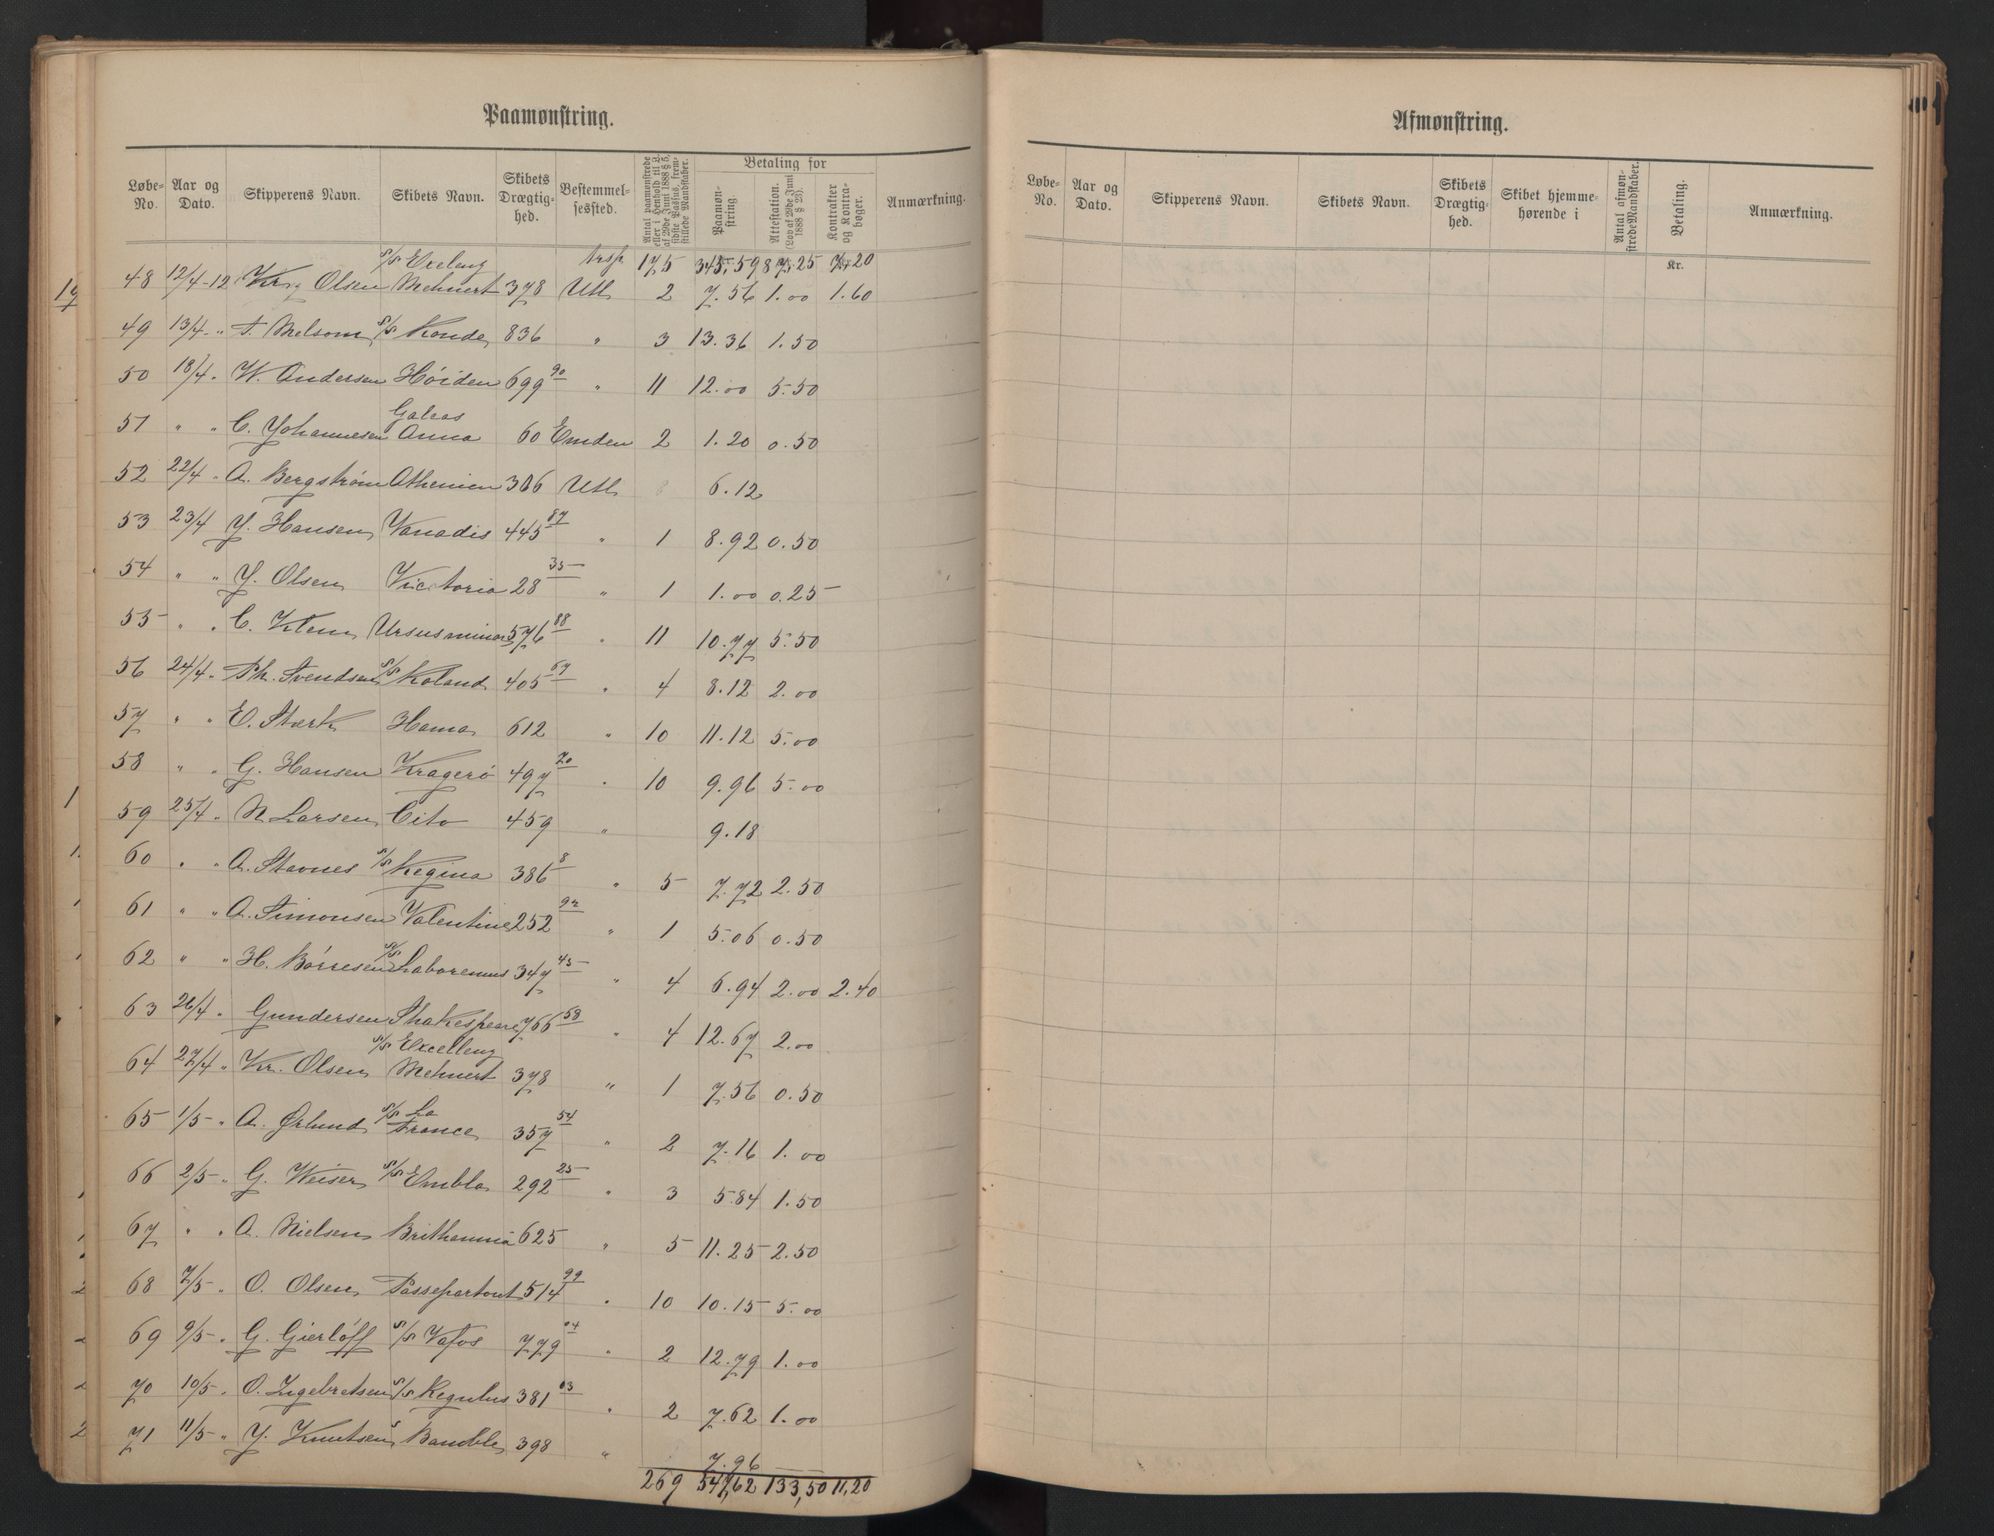 Paamønstring.
Løbe-No. Aar og Dato. Skipperens Navn. Skibets Navn. Skibets Drægtighed. Bestemmelsessted. Antal paamønstrede eller i Henhold til 2. af 29de Juni 1888 § 5, sidste Passus, fremstillede Mandskaber. Betaling for Paamønstring. Attestation. (Lov af 29de Juni 1888 § 23). Kontrakter og Kontrabøger. Anmærkning.
Trsp. 175 345,59 87,25 7,20
48 12/4-12 Kr. Olsen s/s Exeleng Mehnert 378 Utl 2 7.56 1.00 1.60
49 13/4 - " T. Melsom s/s Konde 836 " 3 13.36 1.50
50 18/4 " W. Andersen Høiden 699 90 " 11 12.00 5.50
51 " " C. Johannesen Galeas Anna 60 Emden 2 1.20 0.50
52 22/4 " A. Bergstrøm Athenien 306 Utl 8 6.12
53 23/4 Y. Hansen Vanadis 445 87 " 1 8.92 0.50
54 " " Y. Olsen Victoria 28 35 " 1 1.00 0.25
55 " " C. Klem Ursus minor 576 88 " 11 10.77 5.50
56 24/4 " Th. Svendsen s/s Roland 405 67 " 4 8.12 2.00
57 " " E. Stærk Hama 612 " 10 11.12 5.00
58 " " G. Hansen Kragerø 497 70 " 10 9.96 5.00
59 25/4 " N Larsen Cito 459 " 9.18
60 " " A. Stavnes s/s Regina 386 8 " 5 7.72 2.50
61 " " A. Simonsen Valentine 252 94 " 1 5.06 0.50
62 " " H. Børresen s/s Laboremus 347 45 " 4 6.94 2.00 2.40
63 26/4 " Gundersen Shakespeare 766 58 " 4 12.67 2.00
64 27/4 " Kr. Olsen s/s Excelleng Mehnert 378 " 1 7.56 0.50
65 1/5 - " A. Ørlund s/s La France 357 54 " 2 7.16 1.00
66 2/5 - " G. Weiser s/s Embla 292 25 " 3 5.84 1.50
67 " " A. Nielsen Brithannia 625 " 5 11.25 2.50
68 7/5 - " O. Olsen Passepartout 514 99 " 10 10.15 5.00
69 9/5 - " G. Gierløff s/s Vafos 779 04 " 2 12.79 1.00
70 10/5 - " O. Ingebretsen s/s Regulus 381 03 " 2 7.62 1.00
71 11/5 - " Y. Knutsen s Bamble 398 " 7.96
269 547,62 133,50 11,20
Afmønstring.
Løbe-No. Aar og Dato. Skipperens Navn. Skibets Navn. Skibets Drægtighed. Skibet hjemmehørende i Antal afmønstrede Mandskaber. Betaling. Anmærkning.
Kr.